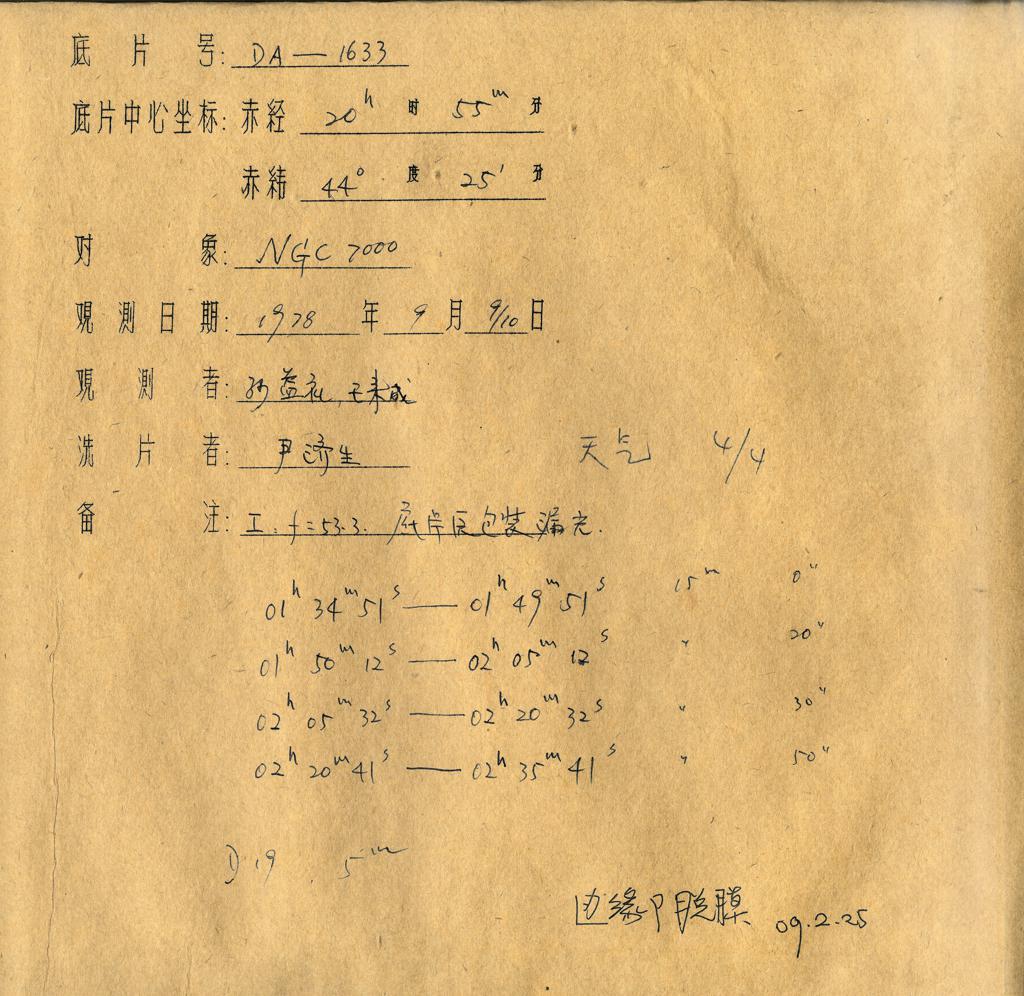 底片号: DA — 1633
底片中心坐标: 赤経 20h 时 55m 分
赤緯 44° 度 25′ 分
对象: NGC 7000
观测日期: 1978 年 9 月 9/10 日
观测者: 孙益礼, 王来成
洗片者: 尹济生 天气 4/4
备注: 工. f=53.3. 底片后包装漏光.
01h 34m 51s — 01h 49m 51s 15m 0″
01h 50m 12s — 02h 05m 12s 〃 20″
02h 05m 32s — 02h 20m 32s 〃 30″
02h 20m 41s — 02h 35m 41s 〃 50″
D19 5m
边缘 脱膜 09.2.25